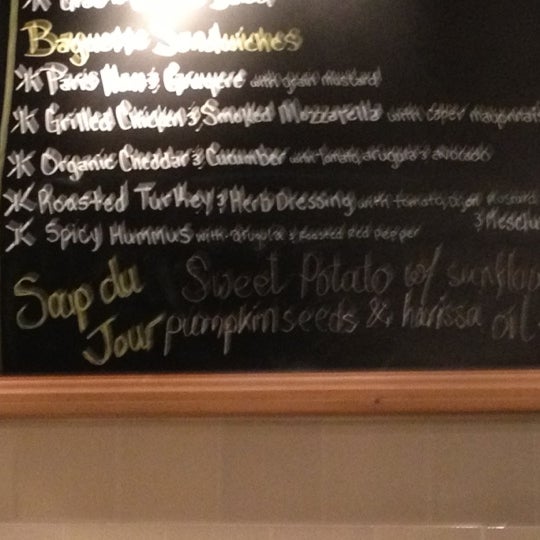 Baguette Sandwiches
Paris Ham & Gruyere with grain mustard
Grilled Chicken & Smoked Mozzarella with caper mayonna
Organic Cheddar & Cucumber with tomato, arugula & avocado
Roasted Turkey & Herb Dressing with tomato, mustard
& Mesclu
Spicy Hummus with arugula & roasted red pepper
Soup du Sweet Potato w/ sunflow
Jour pumpkin seeds & harissa oil